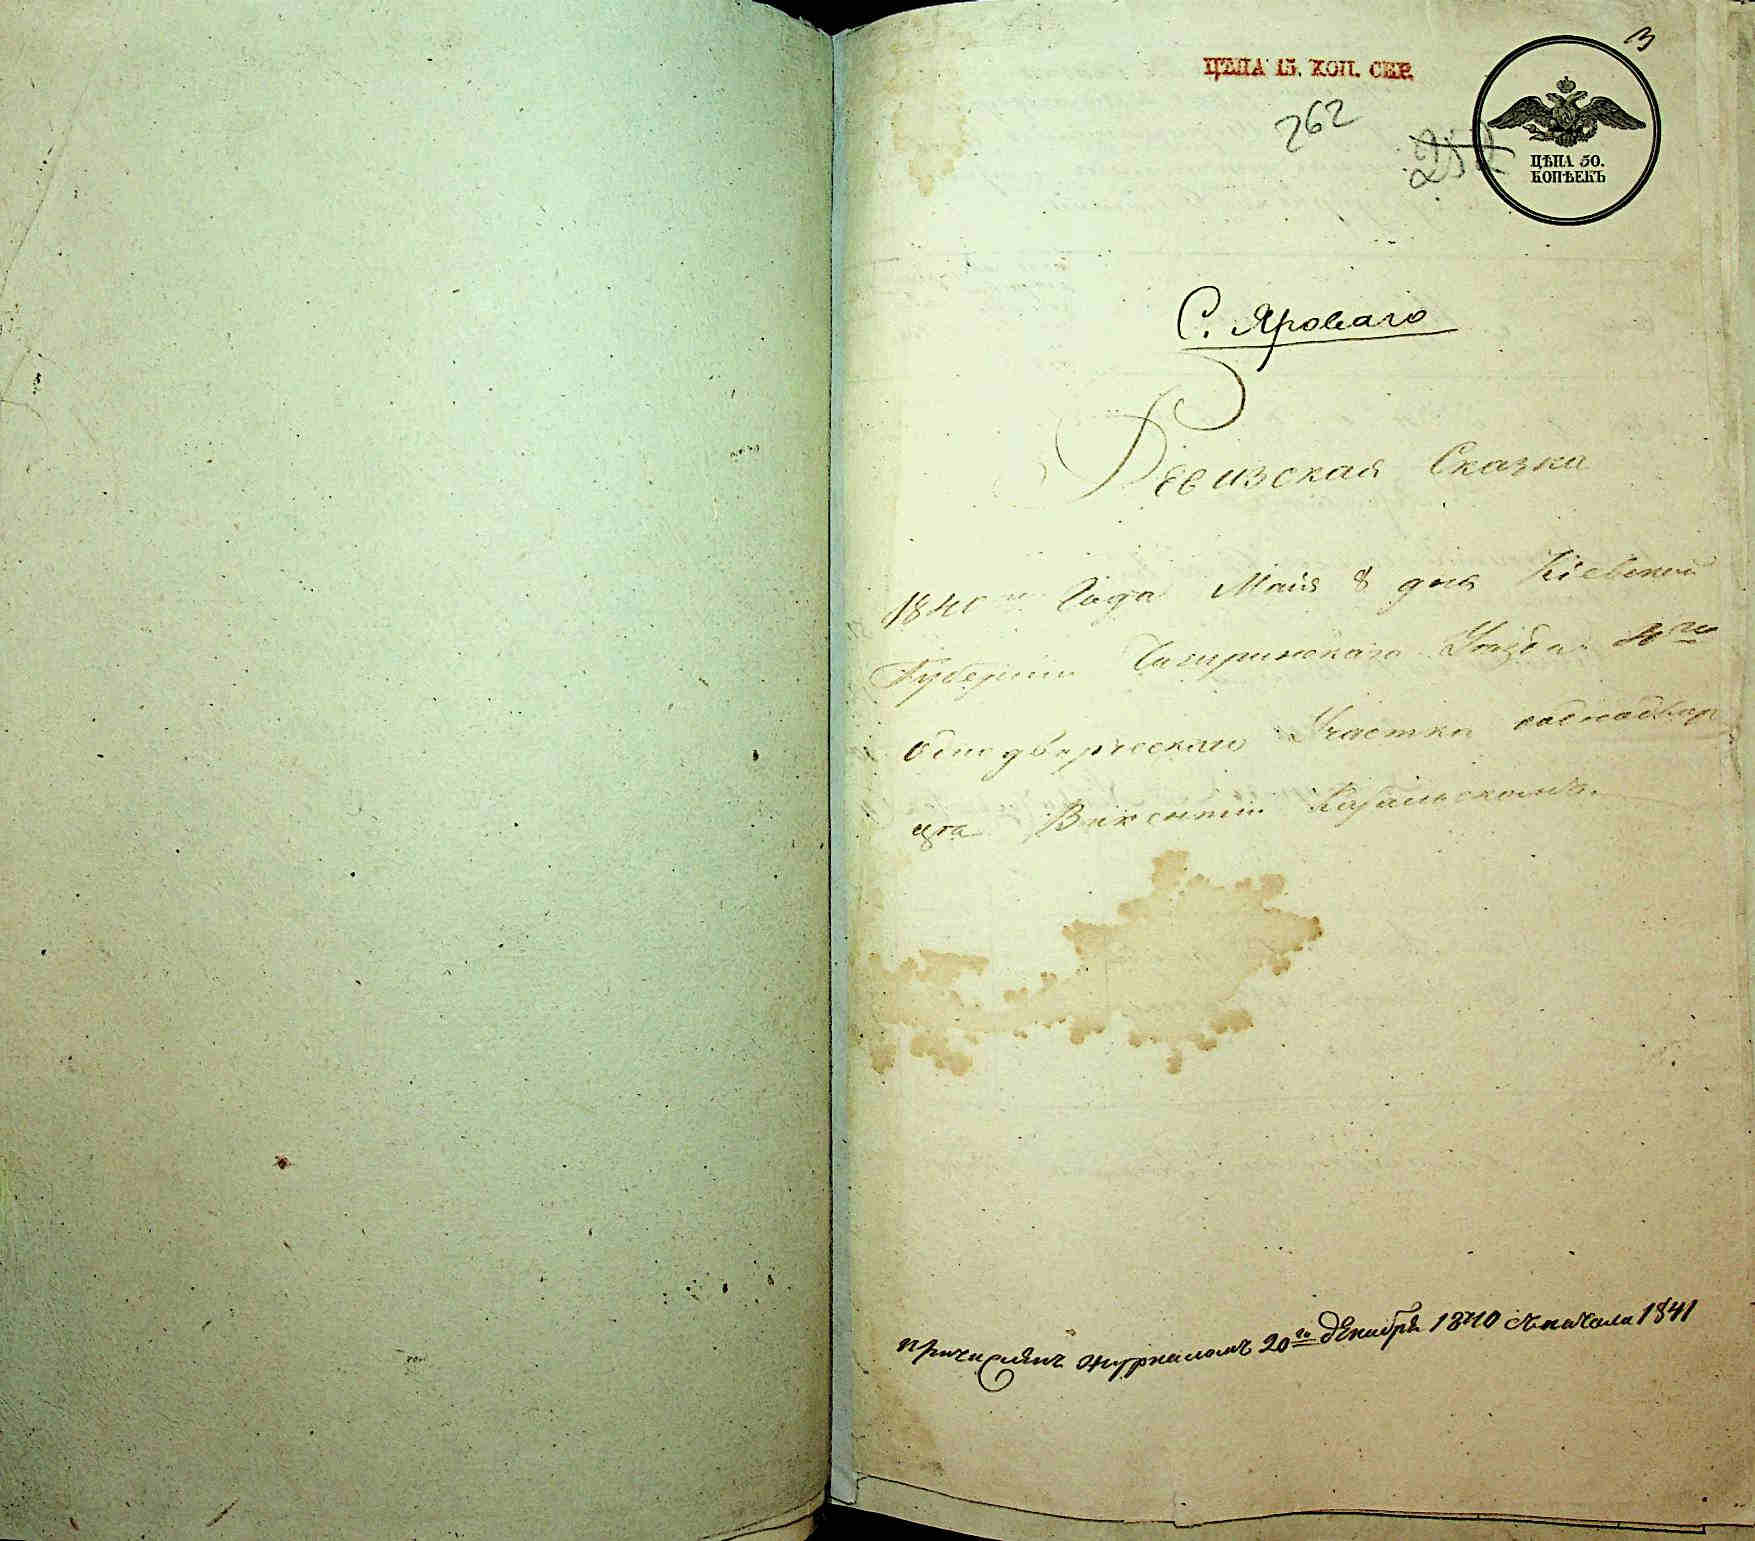 3
ЦѢНА 15. КОП. СЕР.
262
252
ЦѢНА 50.
КОПѢЕКЪ
С. Яроваго
Ревизская Сказка
1840го Года Маія 8 дня Кіевской
Губерніи Чигиринскаго Уѣзда 4го
однодворческаго Участка однодвор
ца Викентія
причисленъ журналомъ 20го декабря 1840 съ начала 1841